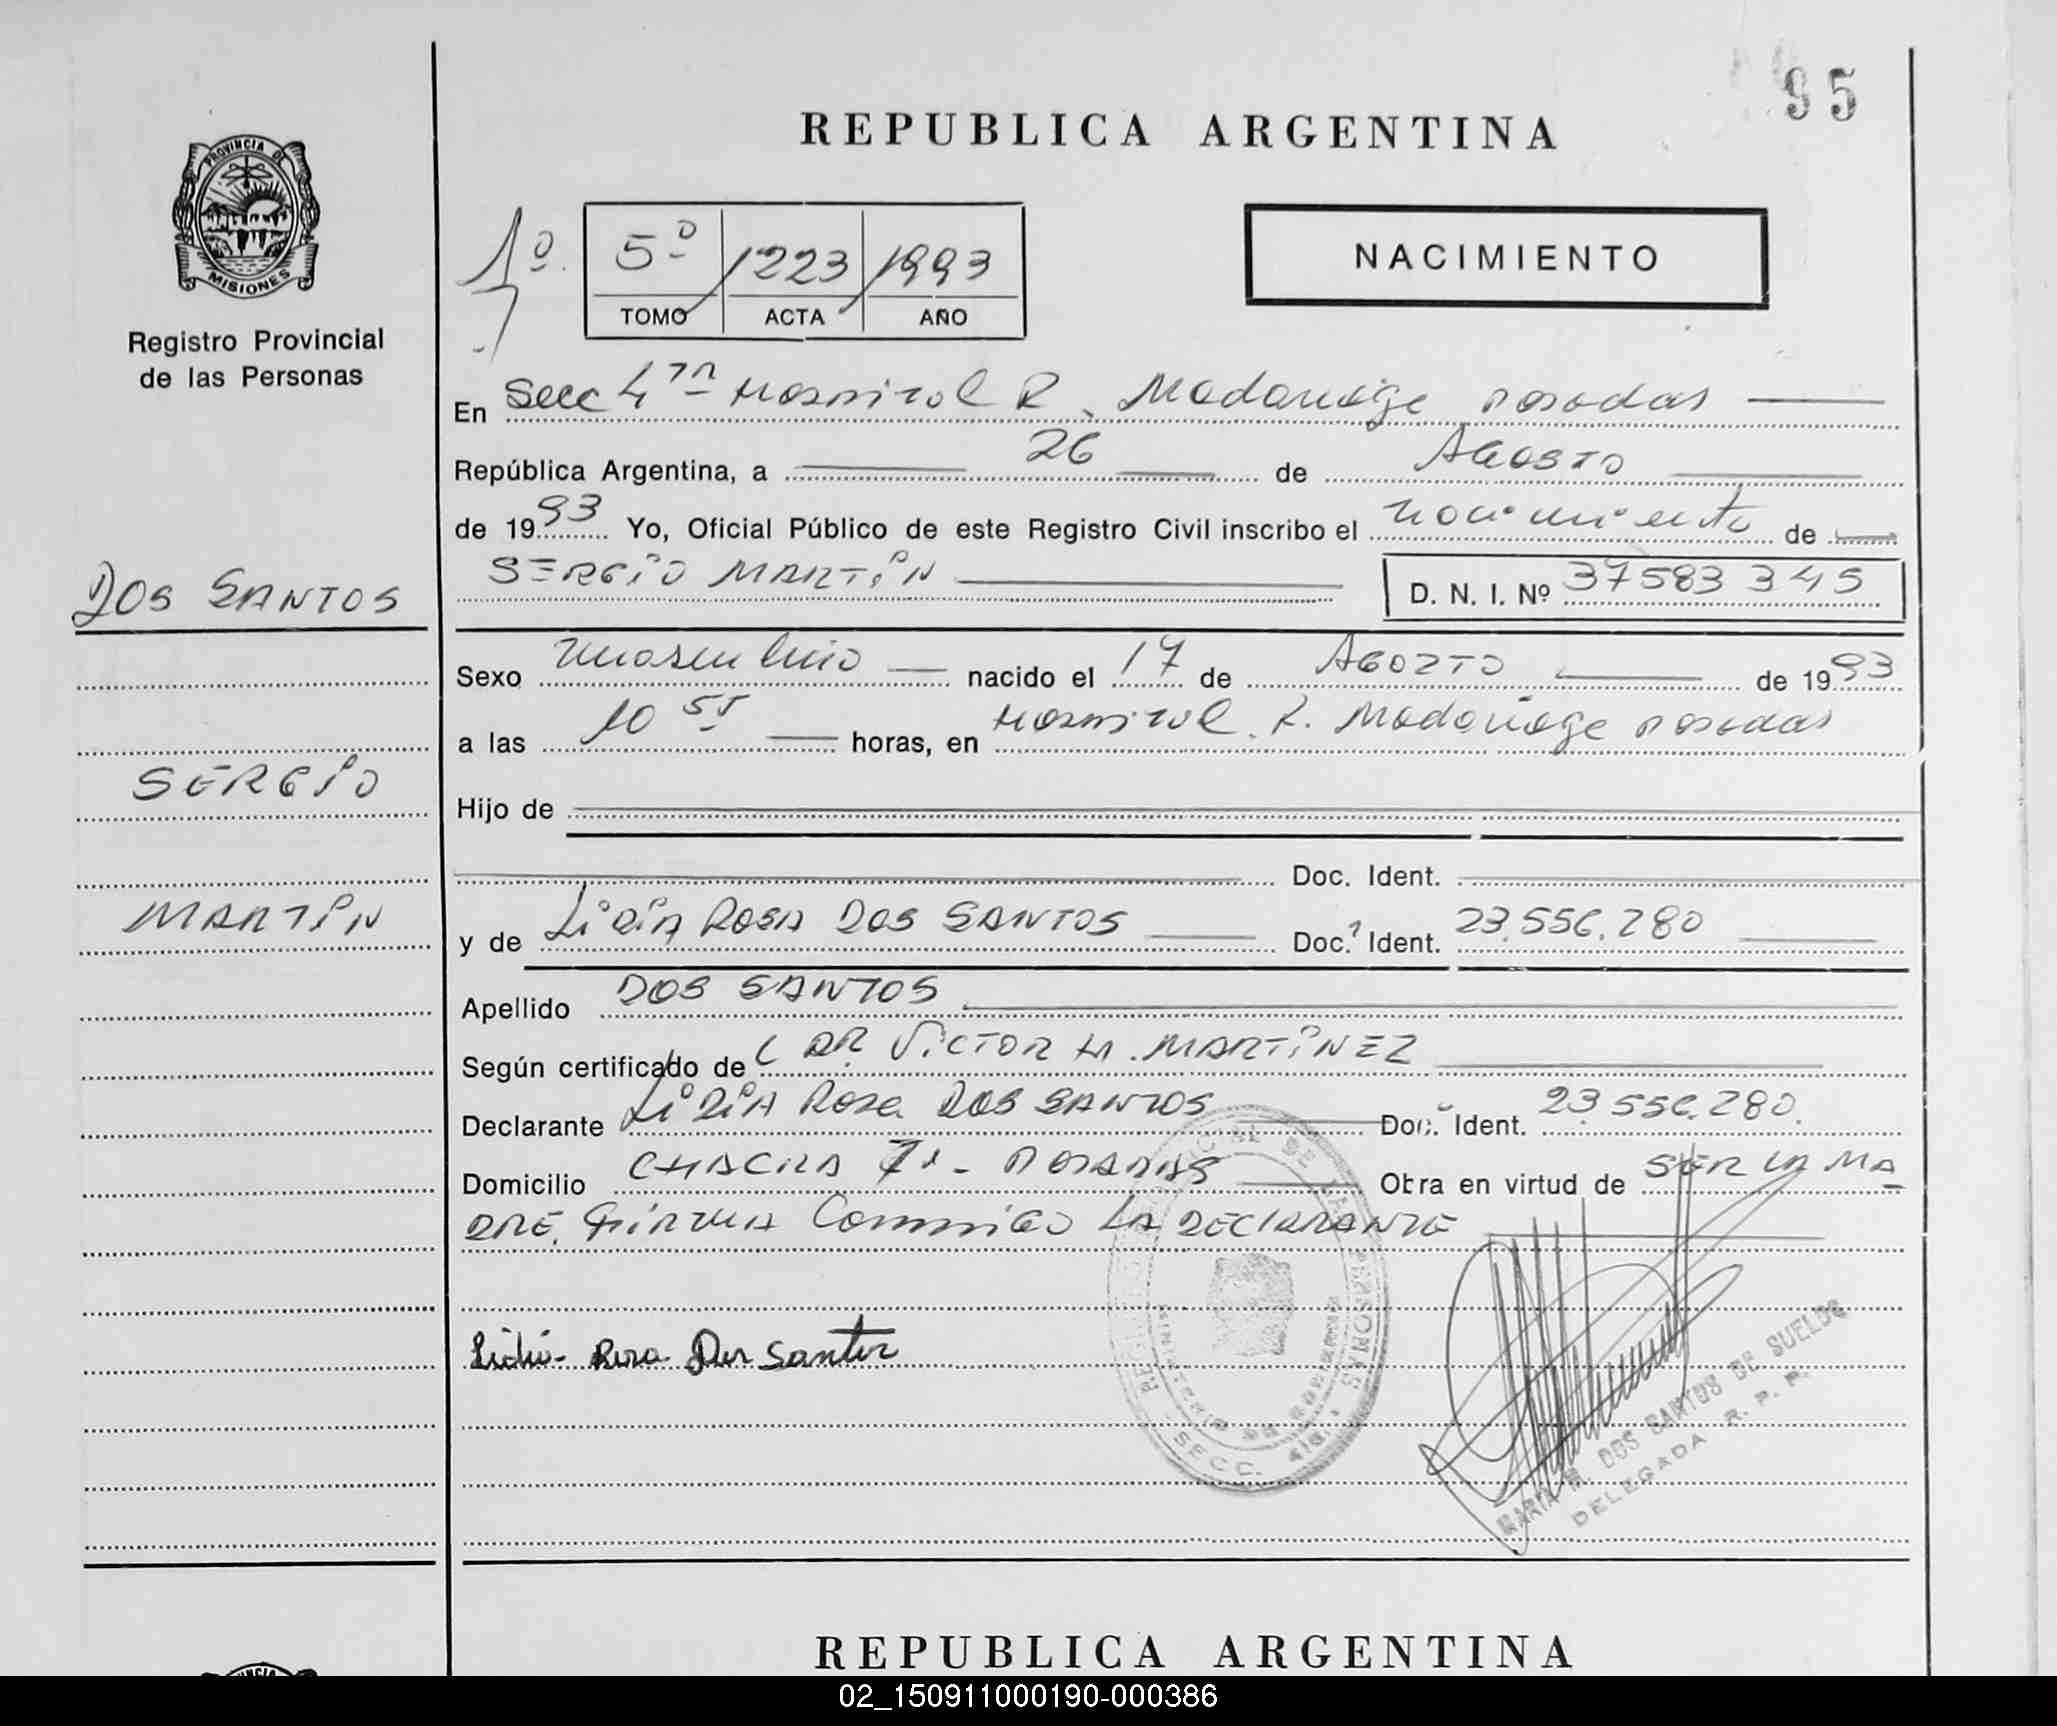 95
REPUBLICA ARGENTINA
PROVINCIA DE
MISIONES
Registro Provincial
de las Personas
1º
5º 1223 1993
TOMO ACTA AÑO
NACIMIENTO
En Secc 4ta Hospital R. Madariaga Posadas
República Argentina, a 26 de AGOSTO
de 1993 Yo, Oficial Público de este Registro Civil inscribo el nacimiento de
SERGIO MARTIN D. N. I. Nº 37583345
DOS SANTOS
Sexo Masculino nacido el 17 de AGOSTO de 1993
a las 10 55 horas, en Hospital R. Madariaga Posadas
SERGIO
Hijo de
Doc. Ident.
MARTIN
y de LIDIA ROSA DOS SANTOS Doc. Ident. 23.556.280
Apellido DOS SANTOS
Según certificado de DR VICTOR H. MARTINEZ
Declarante LIDIA Rosa DOS SANTOS Doc. Ident. 23.556.280.
Domicilio CHACRA POSADAS Obra en virtud de SER LA MA
DRE. FIRMA Conmigo LA DECLARANTE
Lidia Rosa Dos Santos
REGISTRO PROVINCIAL DE LAS PERSONAS
MINISTERIO DE GOBIERNO
SECC. 4ta.
MARIA M. DOS SANTOS DE SUELDO
DELEGADA R. P. P.
REPUBLICA ARGENTINA
02_150911000190-000386